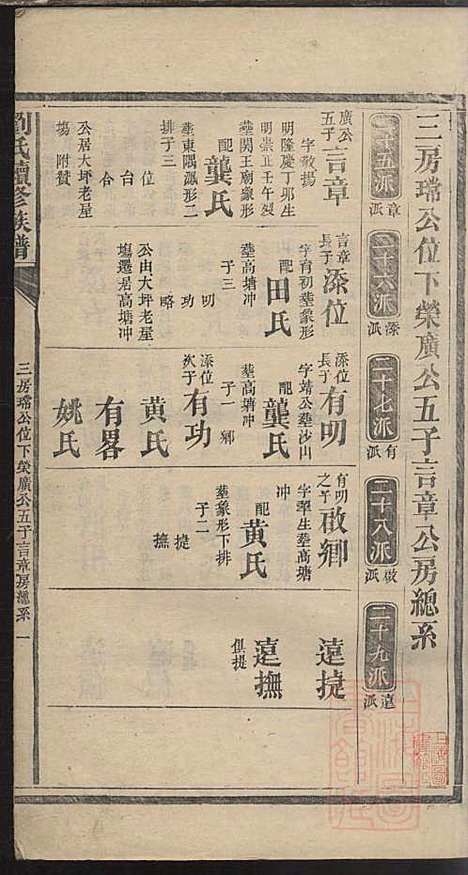 三房瑺公位下榮廣公五子言章公房總系
二十五派
章派
二十六派
添派
二十七派
有派
二十八派
啟派
二十九派
遠派
廣公五子
言章
字敬揚
明隆慶丁卯生
明崇正壬午殁
塟関王廟象形
配
龔氏
塟東隅瓢形二
排子三
位
台
合
公居大坪老屋
塲附贊
言章長子
添位
字育初塟象形
配
田氏
塟高塘冲
子三
明
功
略
公由大坪老屋
塲遷居高塘冲
添位長子
有明
字靖公塟沙山
配
龔氏
塟高塘冲
子一
卿
添位次子
有功
黄氏
有畧
姚氏
有明之子
啟卿
字犂生塟高塘
冲
配
黄氏
塟象形下排
子二
㨗
撫
遠㨗
遠撫
俱㨗
劉氏續修族譜
三房瑺公位下榮廣公五子言章房總系
一